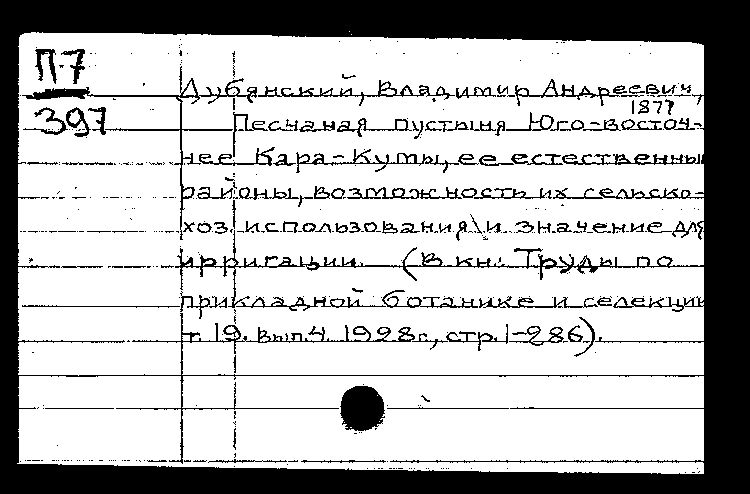 П-7
397
Дубянский, Владимир Андреевич,
1877
Песчаная пустыня Юго-восточ-
нее Кара-Кумы, ее естественны
районы, возможность их сельско-
хоз. использования и значение для
ирригации. (В кн.: Труды по
прикладной ботанике и селекции
т. 19. вып.4. 1928г., стр. 1-286).